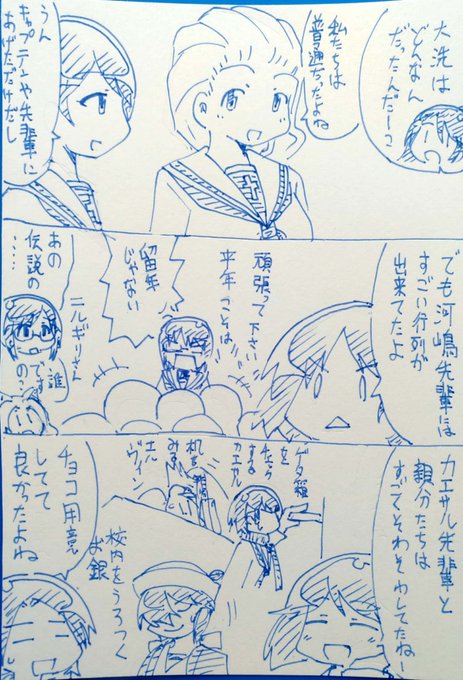 大洗は
どんなん
だったんだーっ?
私たちは
普通だったよね
うん
キャプテンや先輩に
あげただけだし
でも河嶋先輩には
すごい行列が
出来てたよ
頑張って下さい
来年こそは
留年
じゃない
ニルギリさん
あの
伝説の
……
誰
ですの?
カエサル先輩と
親分たちは
すごくそわそわしてたねー
ゲタ箱
を
チラチラ
する
カエサル
机を
みる
エルヴィン
さん
校内をうろつく
お銀
チョコ用意
してて
良かったよね